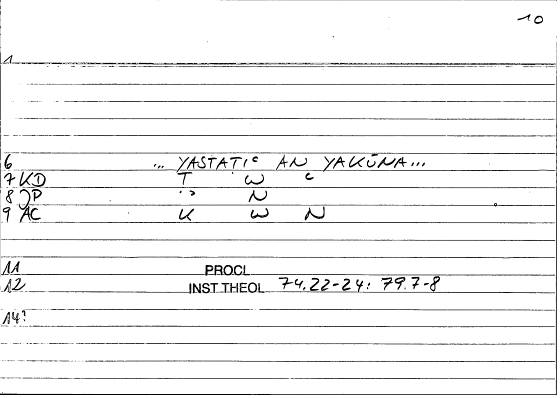 10
1
6 ... YASTATIᶜ AN YAKŪNA...
7 KD T W ᶜ
8 JP ʾ N
9 AC K W N
11 PROCL
12 INST THEOL 74.22-24: 79.7-8
14?